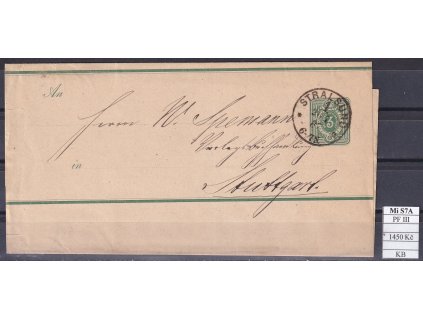 An
Herrn W. Spemann
Verlagsbuchhandlung
in
Stuttgart.
* STRALSUND
3
Mi S7A
PF III
* 1450 Kč
KB